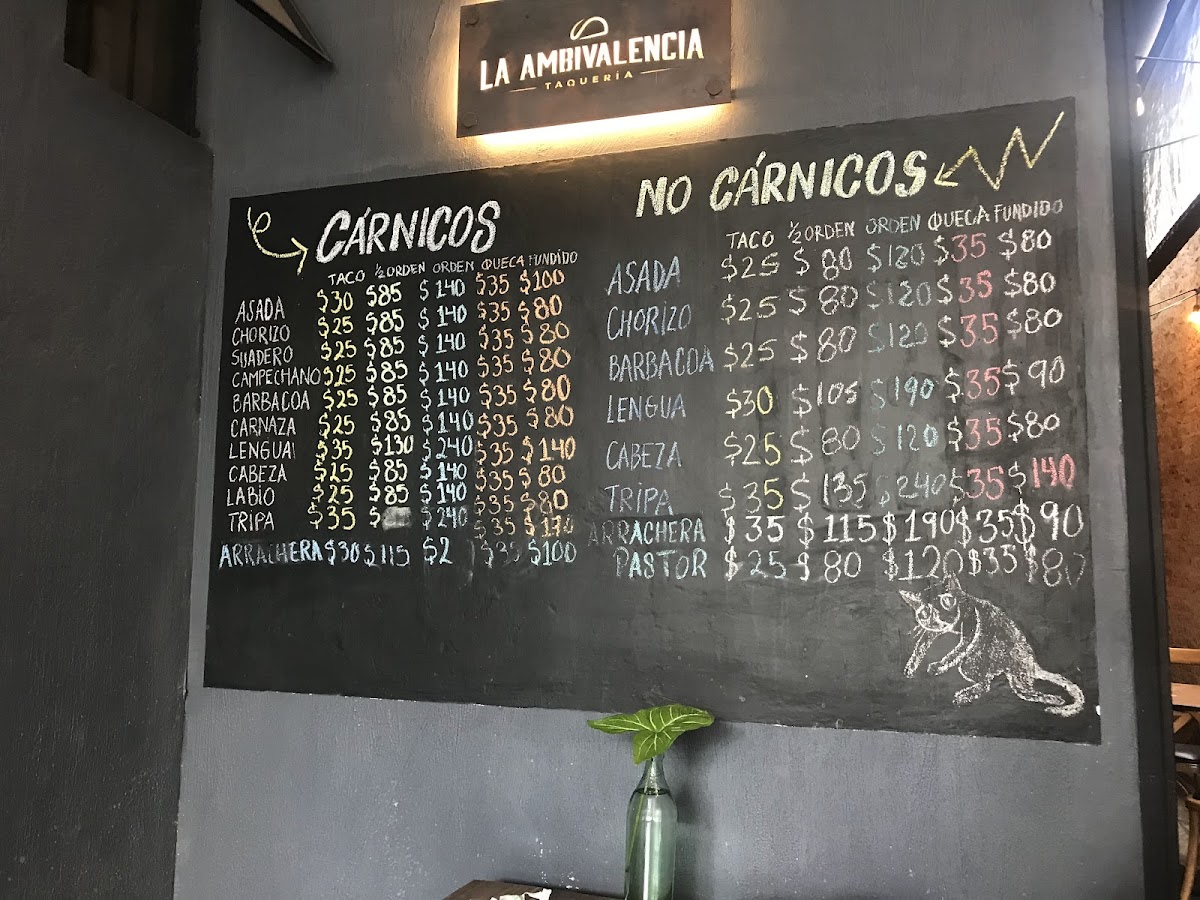 LA AMBIVALENCIA
TAQUERÍA
CÁRNICOS
TACO ½ ORDEN ORDEN QUECA FUNDIDO
ASADA $30 $85 $140 $35 $100
CHORIZO $25 $85 $140 $35 $80
SUADERO $25 $85 $140 $35 $80
CAMPECHANO $25 $85 $140 $35 $80
BARBACOA $25 $85 $140 $35 $80
CARNAZA $25 $85 $140 $35 $80
LENGUA $35 $130 $240 $35 $140
CABEZA $25 $85 $140 $35 $80
LABIO $25 $85 $140 $35 $80
TRIPA $35 $ $240 $35
ARRACHERA $30 $115 $2 $35 $100
NO CÁRNICOS
TACO ½ ORDEN ORDEN QUECA FUNDIDO
ASADA $25 $80 $120 $35 $80
CHORIZO $25 $80 $120 $35 $80
BARBACOA $25 $80 $120 $35 $80
LENGUA $30 $105 $190 $35 $90
CABEZA $25 $80 $120 $35 $80
TRIPA $35 $135 $240 $35 $140
ARRACHERA $35 $115 $190 $35 $90
PASTOR $25 $80 $120 $35 $80